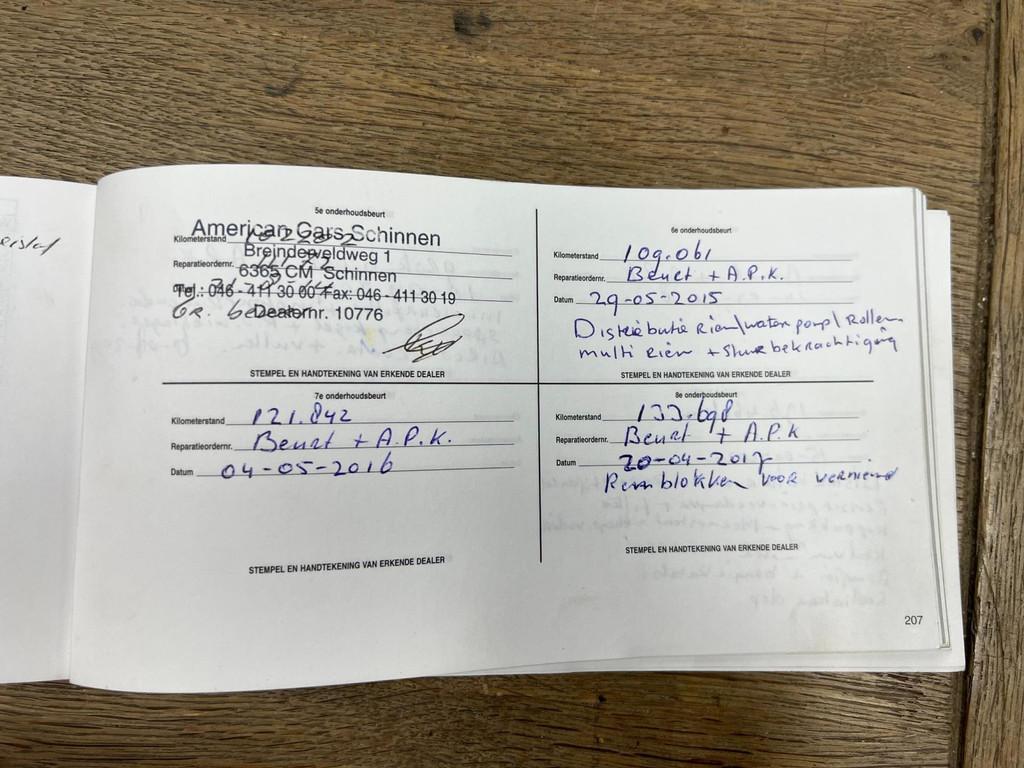 eislaf
5e onderhoudsbeurt
American Cars Schinnen
Kilometerstand
Breinderveldweg 1
Reparatieordernr.
6365 CM Schinnen
Tel.: 046 - 411 30 00 Fax: 046 - 411 30 19
Gr. beurt
Dealernr. 10776
STEMPEL EN HANDTEKENING VAN ERKENDE DEALER
6e onderhoudsbeurt
Kilometerstand 109.061
Reparatieordernr. Beurt + A.P.K.
Datum 29-05-2015
Distributie Riem/waterpomp/Rollen
multi Riem + Stuurbekrachtiging
STEMPEL EN HANDTEKENING VAN ERKENDE DEALER
7e onderhoudsbeurt
Kilometerstand 121.842
Reparatieordernr. Beurt + A.P.K.
Datum 04-05-2016
STEMPEL EN HANDTEKENING VAN ERKENDE DEALER
8e onderhoudsbeurt
Kilometerstand 133.698
Reparatieordernr. Beurt + A.P.K
Datum 20-04-2017
Remblokken voor vernieuwd
STEMPEL EN HANDTEKENING VAN ERKENDE DEALER
207